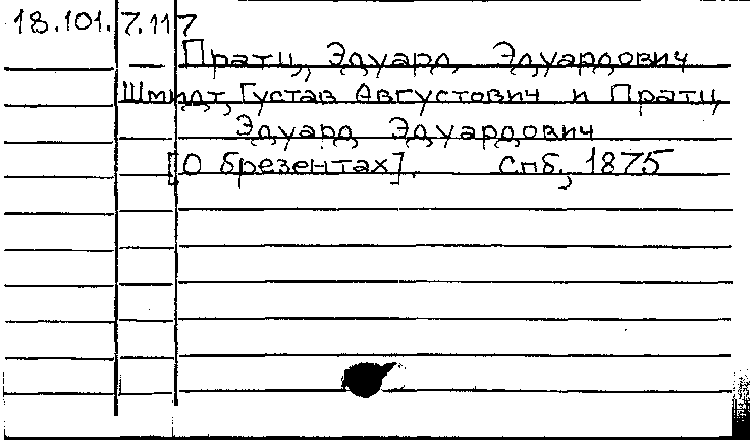 18.101.7.117
— Пратц, Эдуард Эдуардович
Шмидт, Густав Августович и Пратц,
Эдуард Эдуардович
[О брезентах]. Спб., 1875